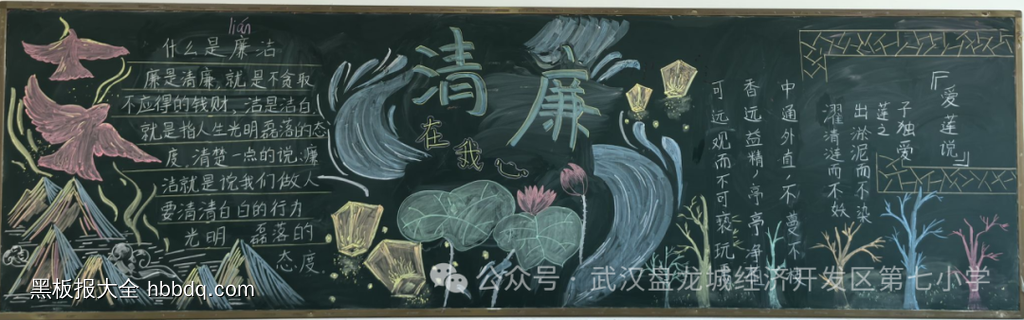 lián
什么是廉洁
廉是清廉,就是不贪取
不应得的钱财,洁是洁白
就是指人生光明磊落的态
度,清楚一点的说,廉
洁就是说我们做人
要清清白白的行为
光明 磊落的
态度.
清廉
在我
『爱莲说』
子独爱
莲之
出淤泥而不染
濯清涟而不妖
中通外直,不蔓不
香远益精,亭亭净
可远观而不可亵玩
黑板报大全 hbbdq.com
公众号 武汉盘龙城经济开发区第七小学